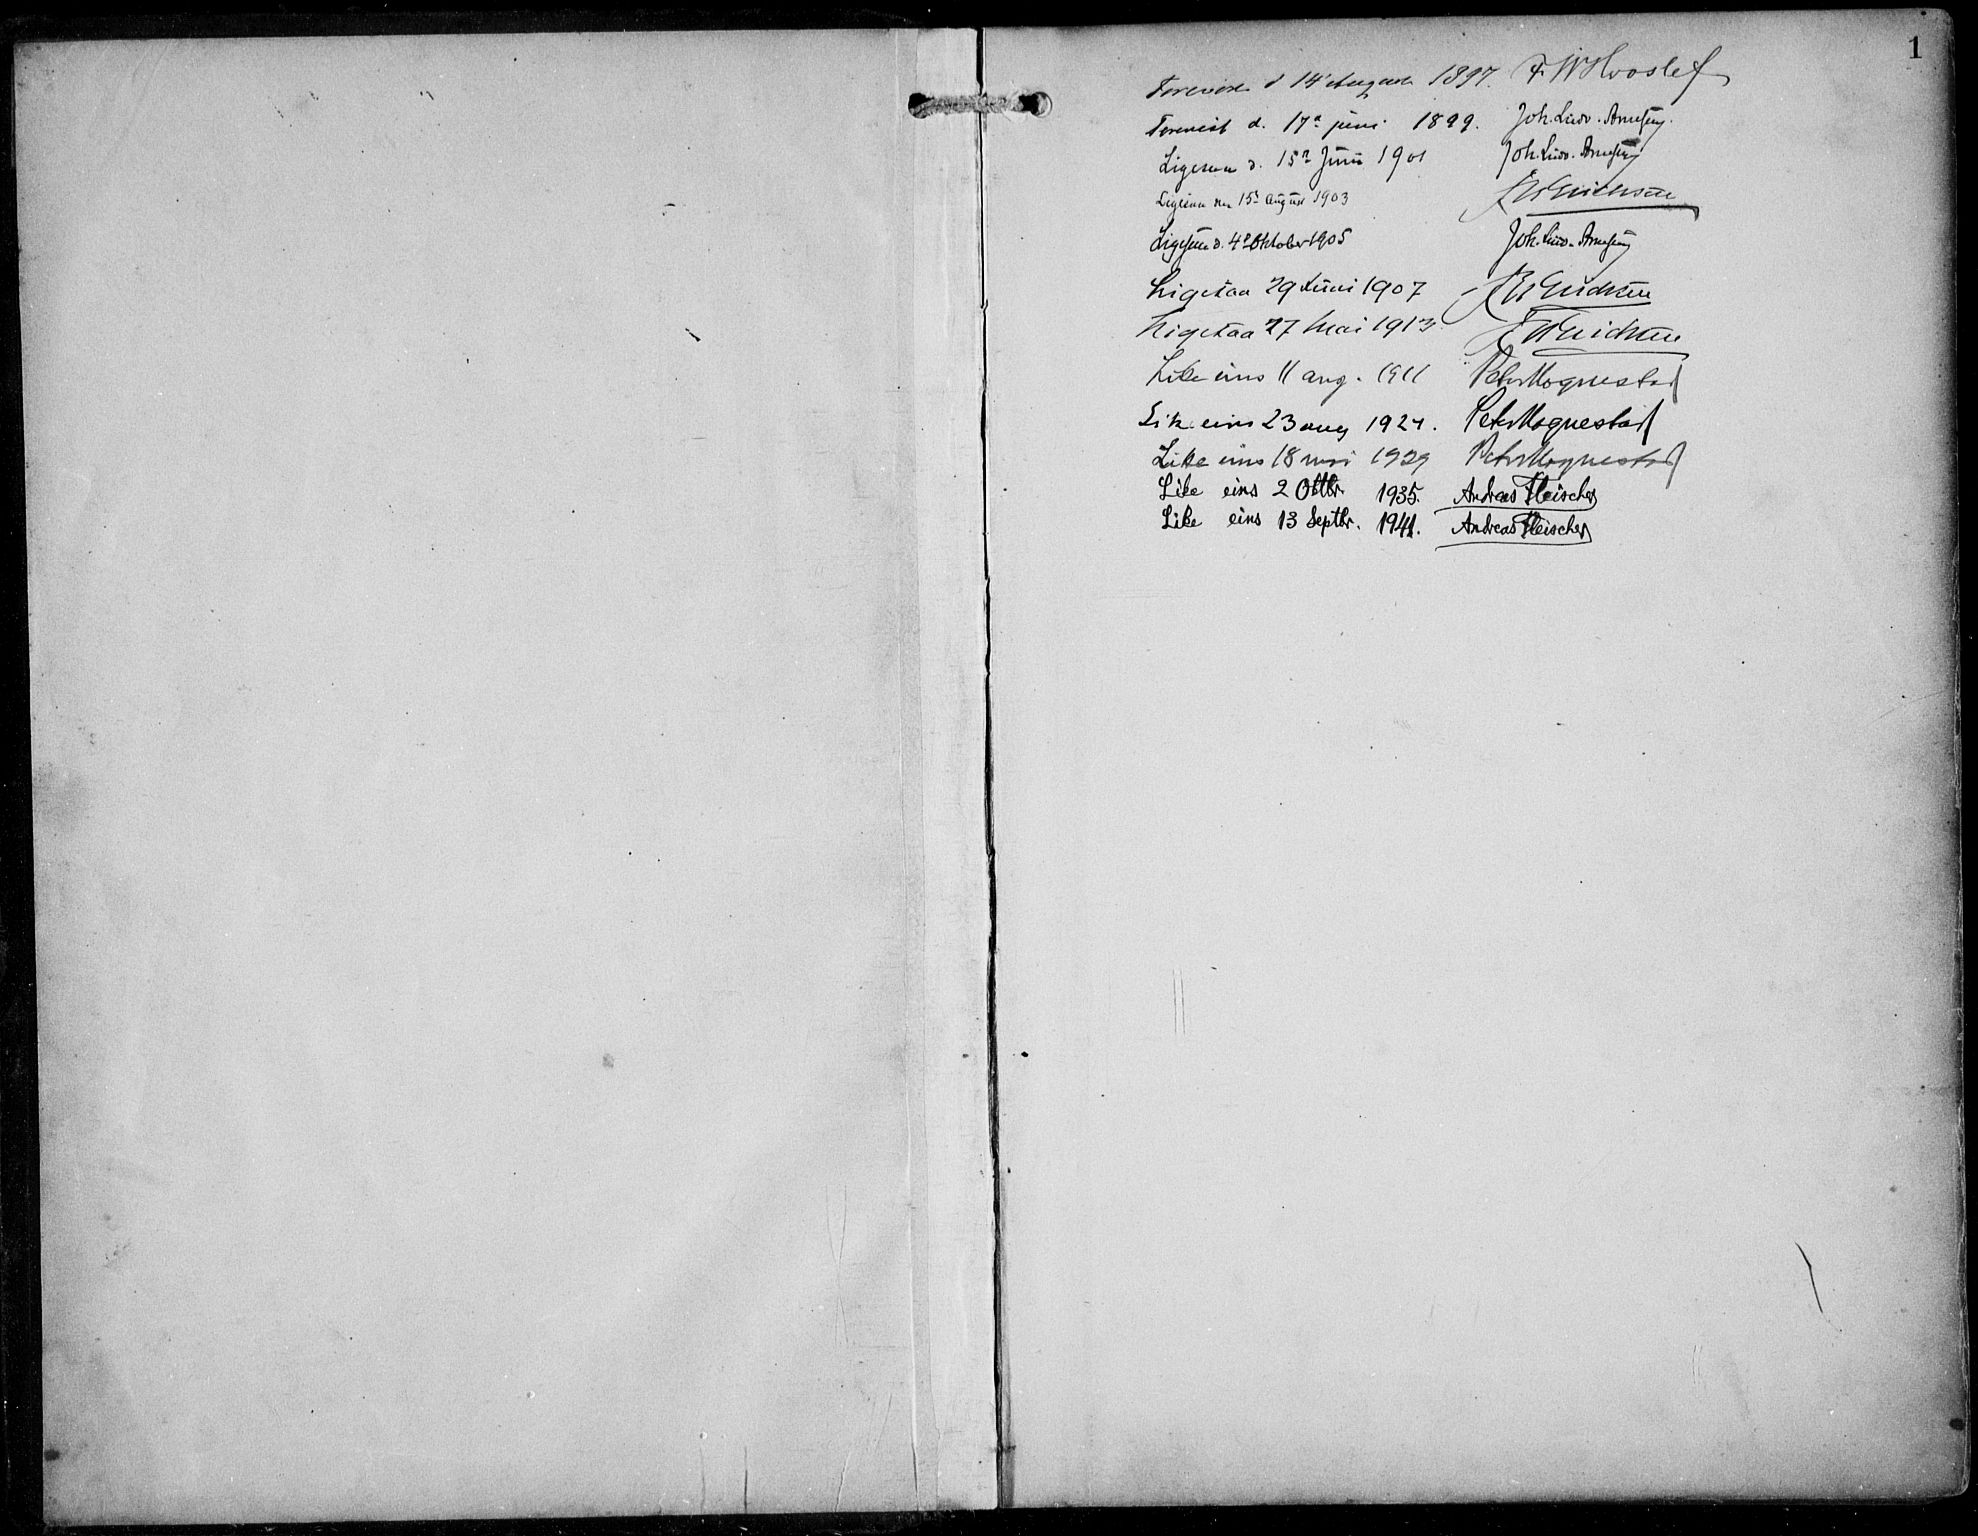 1
Forevist d 14 August 1897. F. W. Hvoslef
Forevist d. 17n juni 1899. Joh. Ludv. Arnesen.
Ligesaa d. 15n Juni 1901 Joh. Ludv. Arnesen
Ligesaa den 15n August 1903
Ligesaa d. 4n Oktober 1905 Joh. Ludv. Arnesen
Ligesaa 29 Juni 1907
Ligesaa 27 Mai 1913
Like eins 11 aug. 1911 Peter Hognestad
Like eins 23 aug 1924. Peter Hognestad
Like eins 18 mai 1929 Peter Hognestad
Like eins 2 Oktbr. 1935. Andreas Fleischer
Like eins 13 Septbr. 1941. Andreas Fleischer